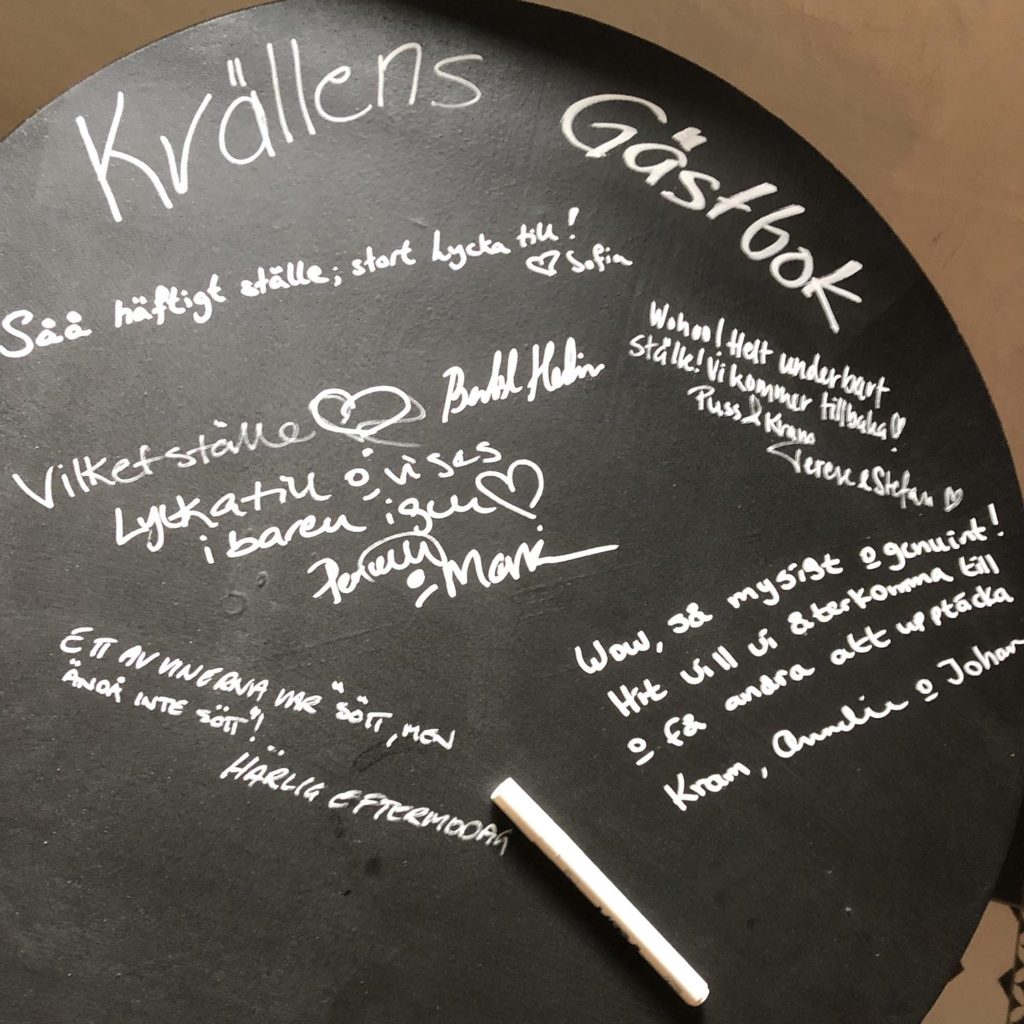 Krällens
Gästbok
Såå häftigt ställe; stort lycka till!
♡ Sofia
Wohoo! Helt underbart
ställe! Vi kommer tillbaka ♡
Puss & Kram
Terese & Stefan ♡
Vilket ställe ♡
Lycka till o vi ses
i baren igen ♡
o Marie
Wow, så mysigt o genuint!
Hit vill vi återkomma till
o få andra att upptäcka
Kram, Annelie o Johan
ETT AV VINERNA VAR "SÖTT, MEN
ÄNDÅ INTE SÖTT"!
HÄRLIG EFTERMIDDAG